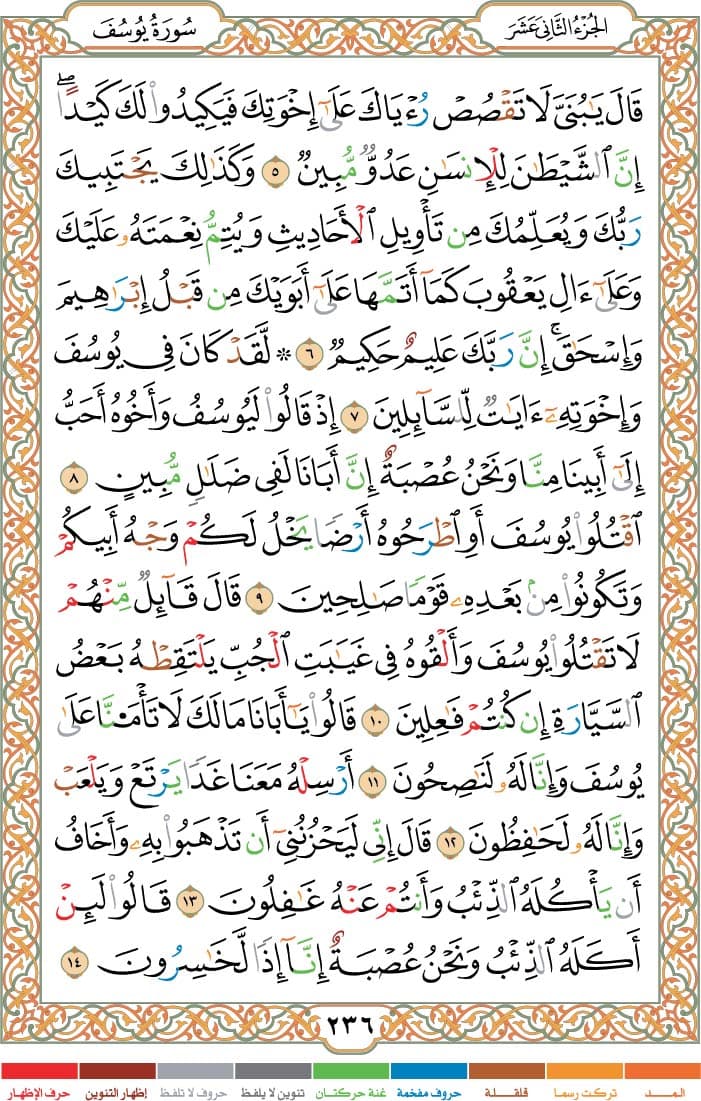 الجُزْءُ الثَّانِى عَشَرَ
سُورَةُ يُوسُفَ
قَالَ يَٰبُنَىَّ لَا تَقْصُصْ رُءْيَاكَ عَلَىٰٓ إِخْوَتِكَ فَيَكِيدُوا۟ لَكَ كَيْدًا ۖ
إِنَّ ٱلشَّيْطَٰنَ لِلْإِنسَٰنِ عَدُوٌّ مُّبِينٌ ٥ وَكَذَٰلِكَ يَجْتَبِيكَ
رَبُّكَ وَيُعَلِّمُكَ مِن تَأْوِيلِ ٱلْأَحَادِيثِ وَيُتِمُّ نِعْمَتَهُۥ عَلَيْكَ
وَعَلَىٰٓ ءَالِ يَعْقُوبَ كَمَآ أَتَمَّهَا عَلَىٰٓ أَبَوَيْكَ مِن قَبْلُ إِبْرَٰهِيمَ
وَإِسْحَٰقَ ۚ إِنَّ رَبَّكَ عَلِيمٌ حَكِيمٌ ٦ ۞ لَّقَدْ كَانَ فِى يُوسُفَ
وَإِخْوَتِهِۦٓ ءَايَٰتٌ لِّلسَّآئِلِينَ ٧ إِذْ قَالُوا۟ لَيُوسُفُ وَأَخُوهُ أَحَبُّ
إِلَىٰٓ أَبِينَا مِنَّا وَنَحْنُ عُصْبَةٌ إِنَّ أَبَانَا لَفِى ضَلَٰلٍ مُّبِينٍ ٨
ٱقْتُلُوا۟ يُوسُفَ أَوِ ٱطْرَحُوهُ أَرْضًا يَخْلُ لَكُمْ وَجْهُ أَبِيكُمْ
وَتَكُونُوا۟ مِنۢ بَعْدِهِۦ قَوْمًا صَٰلِحِينَ ٩ قَالَ قَآئِلٌ مِّنْهُمْ
لَا تَقْتُلُوا۟ يُوسُفَ وَأَلْقُوهُ فِى غَيَٰبَتِ ٱلْجُبِّ يَلْتَقِطْهُ بَعْضُ
ٱلسَّيَّارَةِ إِن كُنتُمْ فَٰعِلِينَ ١٠ قَالُوا۟ يَٰٓأَبَانَا مَالَكَ لَا تَأْمَ۫نَّا عَلَىٰ
يُوسُفَ وَإِنَّا لَهُۥ لَنَٰصِحُونَ ١١ أَرْسِلْهُ مَعَنَا غَدًا يَرْتَعْ وَيَلْعَبْ
وَإِنَّا لَهُۥ لَحَٰفِظُونَ ١٢ قَالَ إِنِّى لَيَحْزُنُنِىٓ أَن تَذْهَبُوا۟ بِهِۦ وَأَخَافُ
أَن يَأْكُلَهُ ٱلذِّئْبُ وَأَنتُمْ عَنْهُ غَٰفِلُونَ ١٣ قَالُوا۟ لَئِنْ
أَكَلَهُ ٱلذِّئْبُ وَنَحْنُ عُصْبَةٌ إِنَّآ إِذًا لَّخَٰسِرُونَ ١٤
٢٣٦
المـــد
تركت رسما
قلقــلة
حروف مفخمة
غنة حركتـان
تنوين لا يلفظ
حروف لا تلفظ
إظهار التنوين
حرف الإظهار